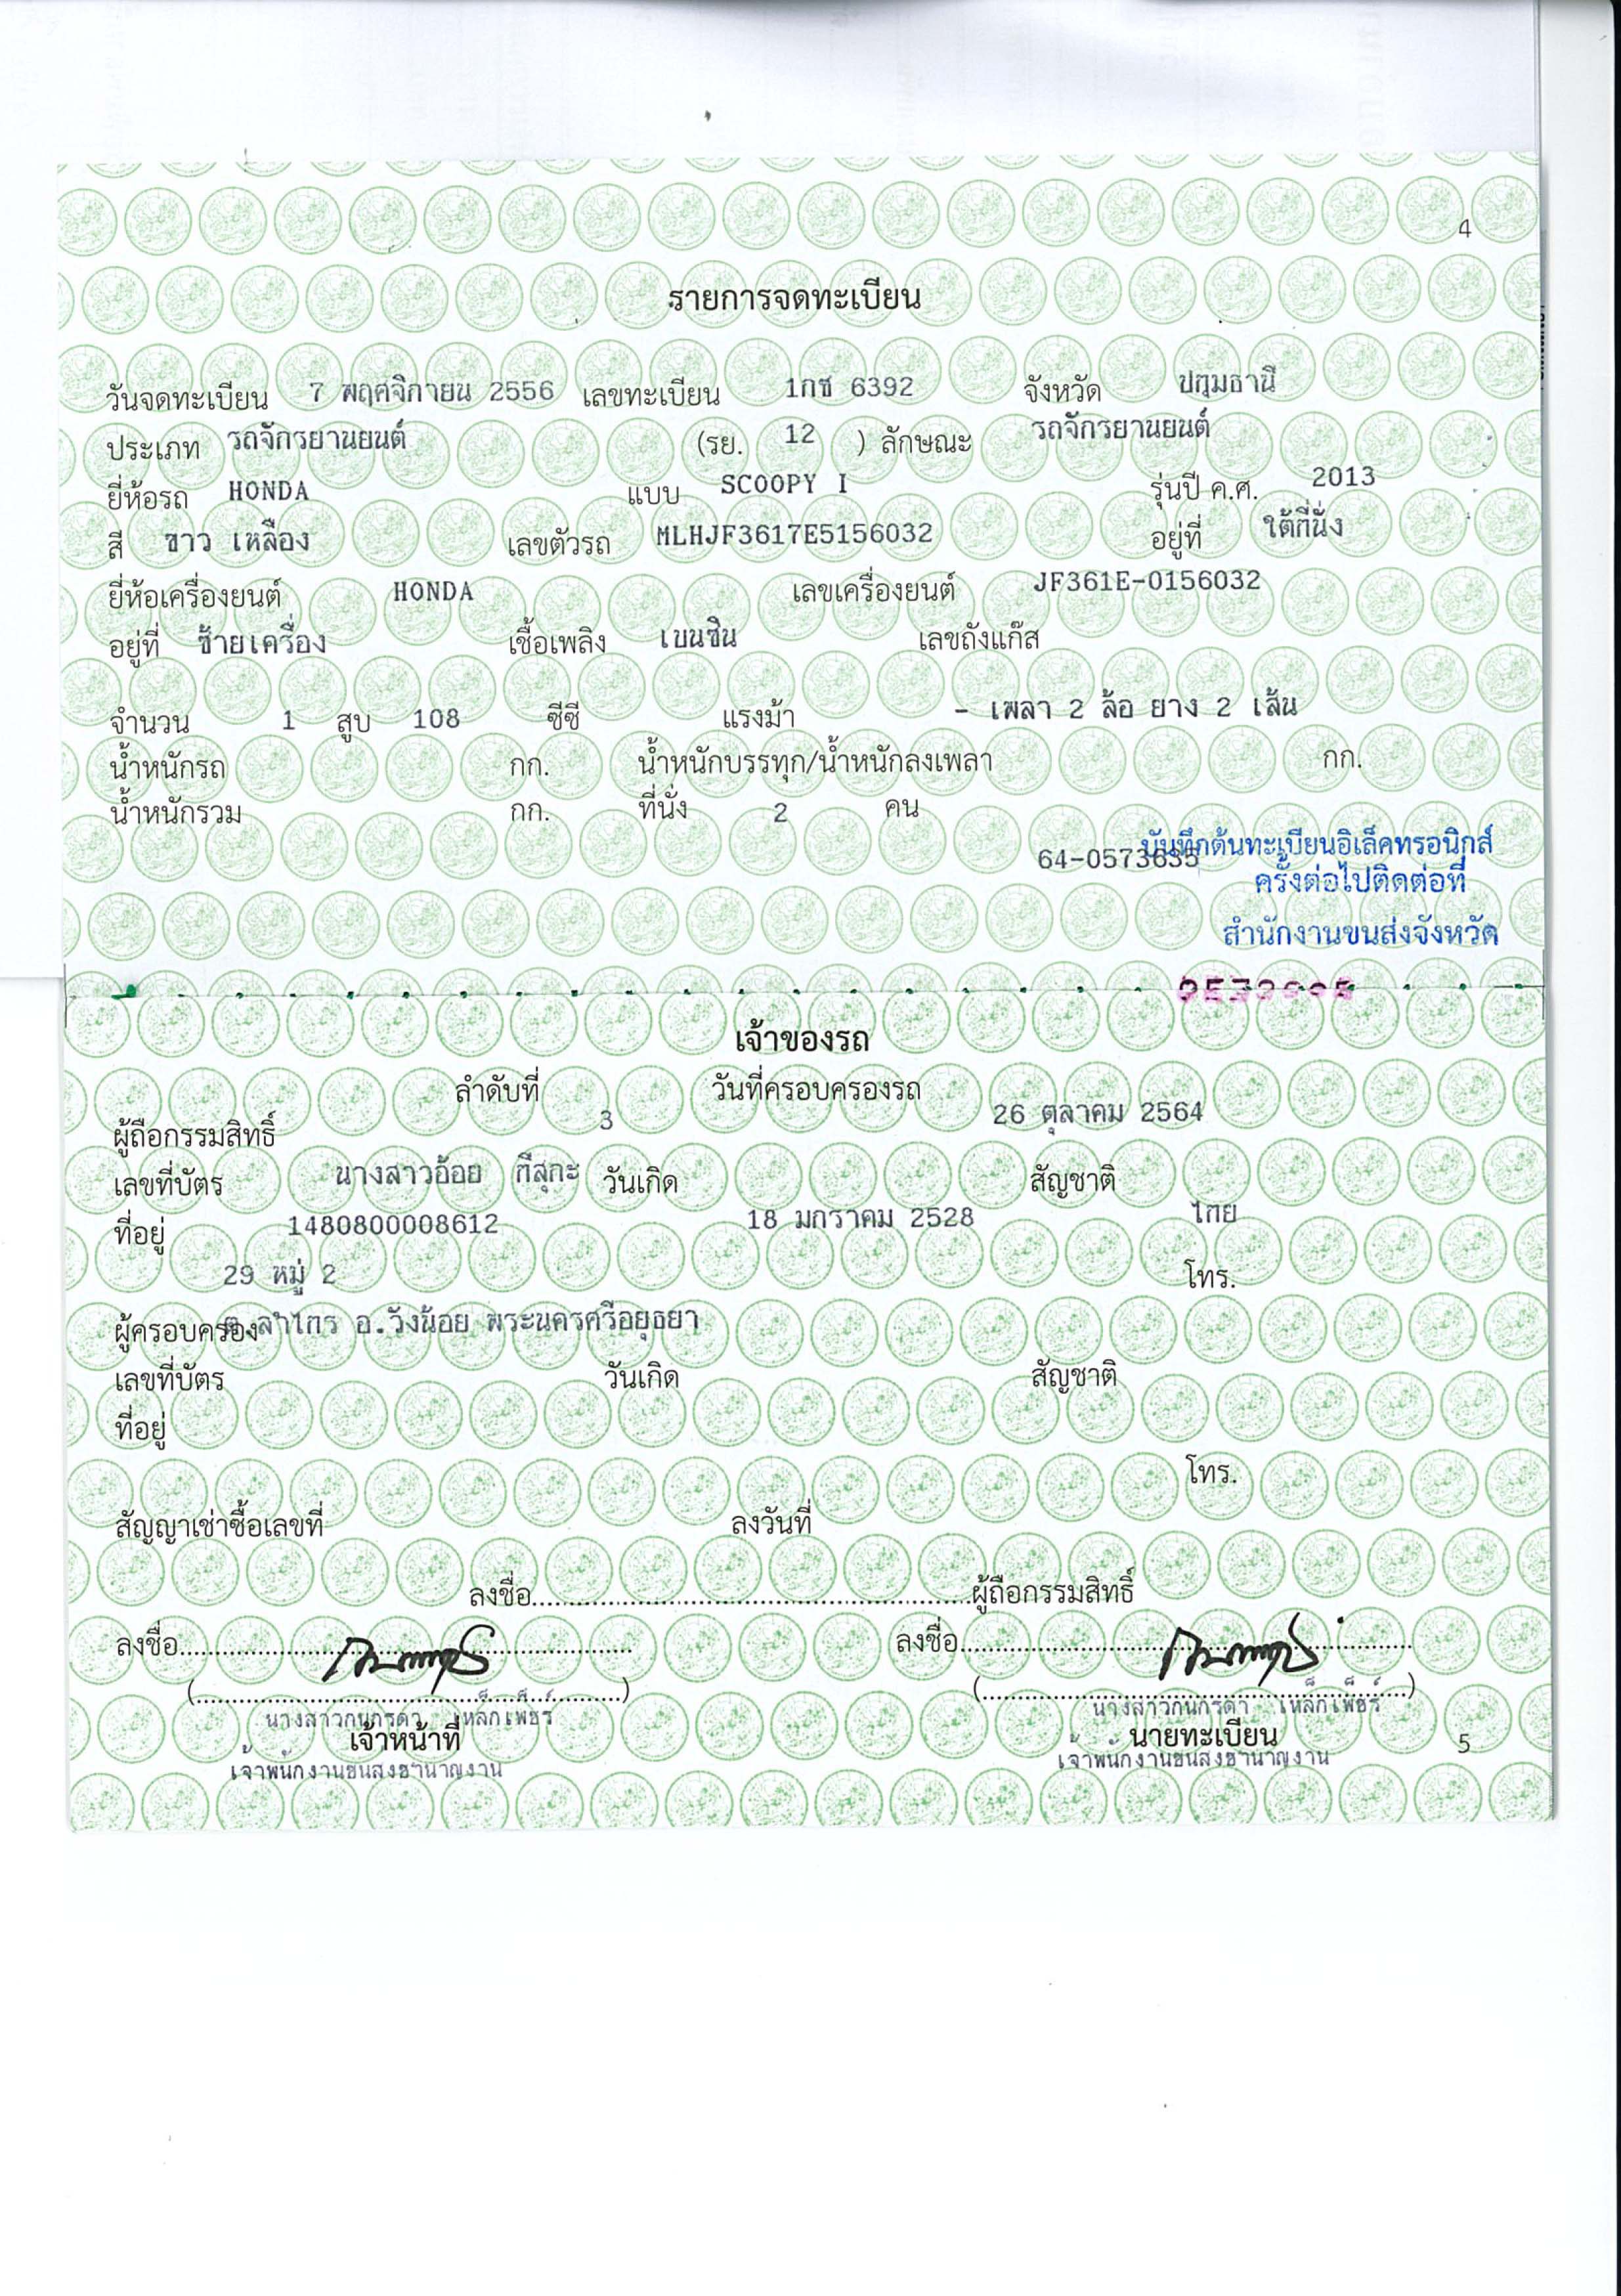 4
รายการจดทะเบียน
วันจดทะเบียน 7 พฤศจิกายน 2556 เลขทะเบียน 1กช 6392 จังหวัด ปทุมธานี
ประเภท รถจักรยานยนต์ (รย. 12 ) ลักษณะ รถจักรยานยนต์
ยี่ห้อรถ HONDA แบบ SCOOPY I รุ่นปี ค.ศ. 2013
สี ขาว เหลือง เลขตัวรถ MLHJF3617E5156032 อยู่ที่ ใต้ที่นั่ง
ยี่ห้อเครื่องยนต์ HONDA เลขเครื่องยนต์ JF361E-0156032
อยู่ที่ ซ้ายเครื่อง เชื้อเพลิง เบนซิน เลขถังแก๊ส
จำนวน 1 สูบ 108 ซีซี แรงม้า - เพลา 2 ล้อ ยาง 2 เส้น
น้ำหนักรถ กก. น้ำหนักบรรทุก/น้ำหนักลงเพลา กก.
น้ำหนักรวม กก. ที่นั่ง 2 คน
บันทึกต้นทะเบียนอิเล็คทรอนิกส์
64-0573635
ครั้งต่อไปติดต่อที่
สำนักงานขนส่งจังหวัด
เจ้าของรถ
ลำดับที่ 3 วันที่ครอบครองรถ 26 ตุลาคม 2564
ผู้ถือกรรมสิทธิ์
เลขที่บัตร นางสาวอ้อย ทีสุกะ วันเกิด สัญชาติ
ที่อยู่ 1480800008612 18 มกราคม 2528 ไทย
29 หมู่ 2 โทร.
ผู้ครอบครอง ต.ลำไทร อ.วังน้อย พระนครศรีอยุธยา
เลขที่บัตร วันเกิด สัญชาติ
ที่อยู่
โทร.
สัญญาเช่าซื้อเลขที่ ลงวันที่
ลงชื่อ..........ผู้ถือกรรมสิทธิ์
ลงชื่อ.......... ลงชื่อ..........
(..........) (..........)
นางสาวกนกรดา เหล็กเพ็ชร์ นางสาวกนกรดา เหล็กเพ็ชร์
เจ้าหน้าที่ นายทะเบียน 5
เจ้าพนักงานขนส่งชำนาญงาน เจ้าพนักงานขนส่งชำนาญงาน